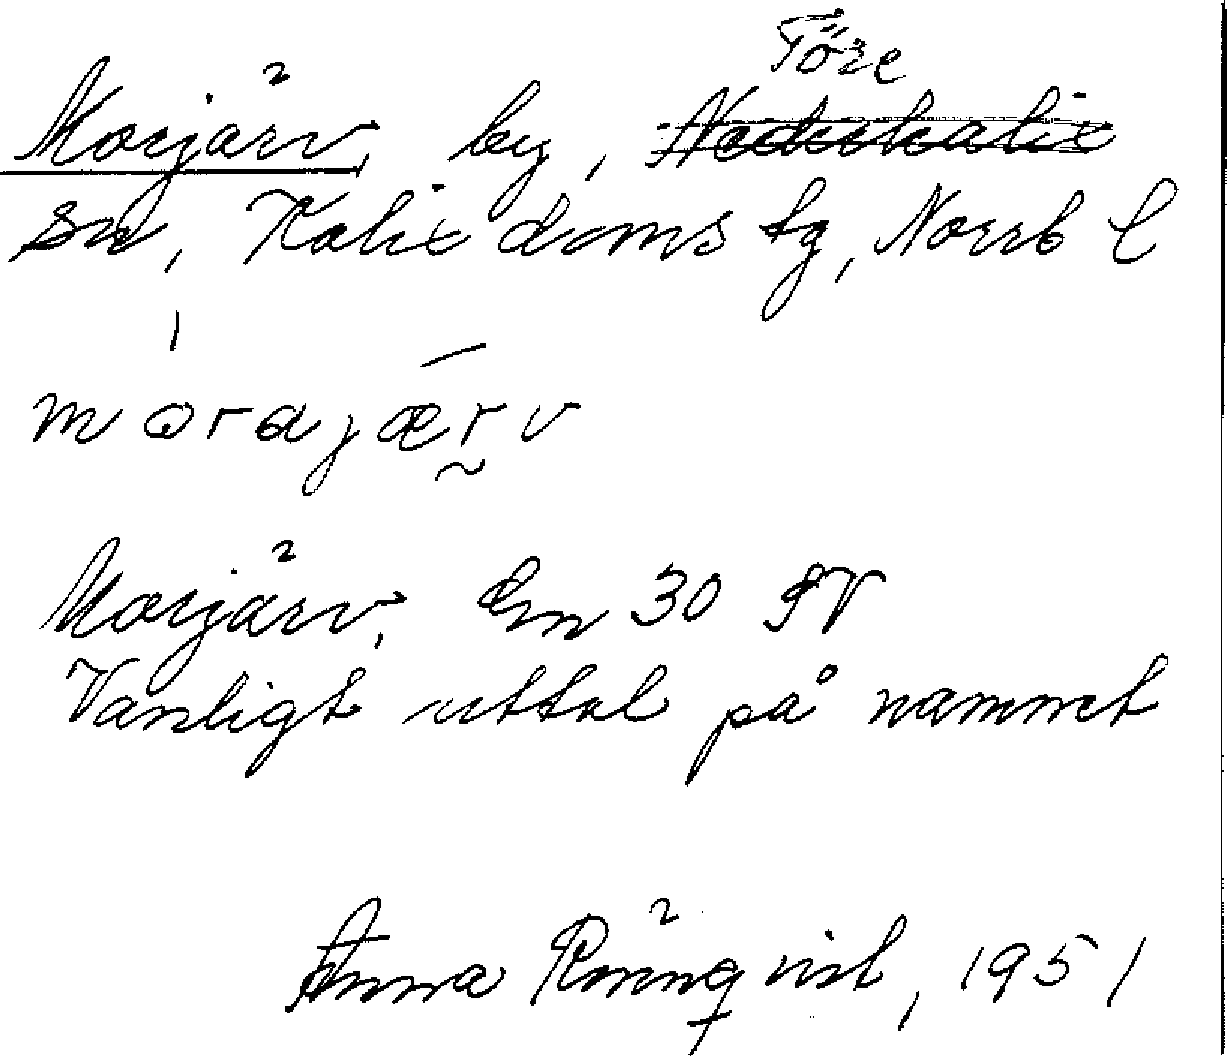 Töre
Morjärv, by, Nederkalix
sn, Kalix doms tg, Norrb l
mòrajǣr̰v
Morjärv. En 30 SV
Vanligt uttal på namnet
Anna Rönnqvist, 1951